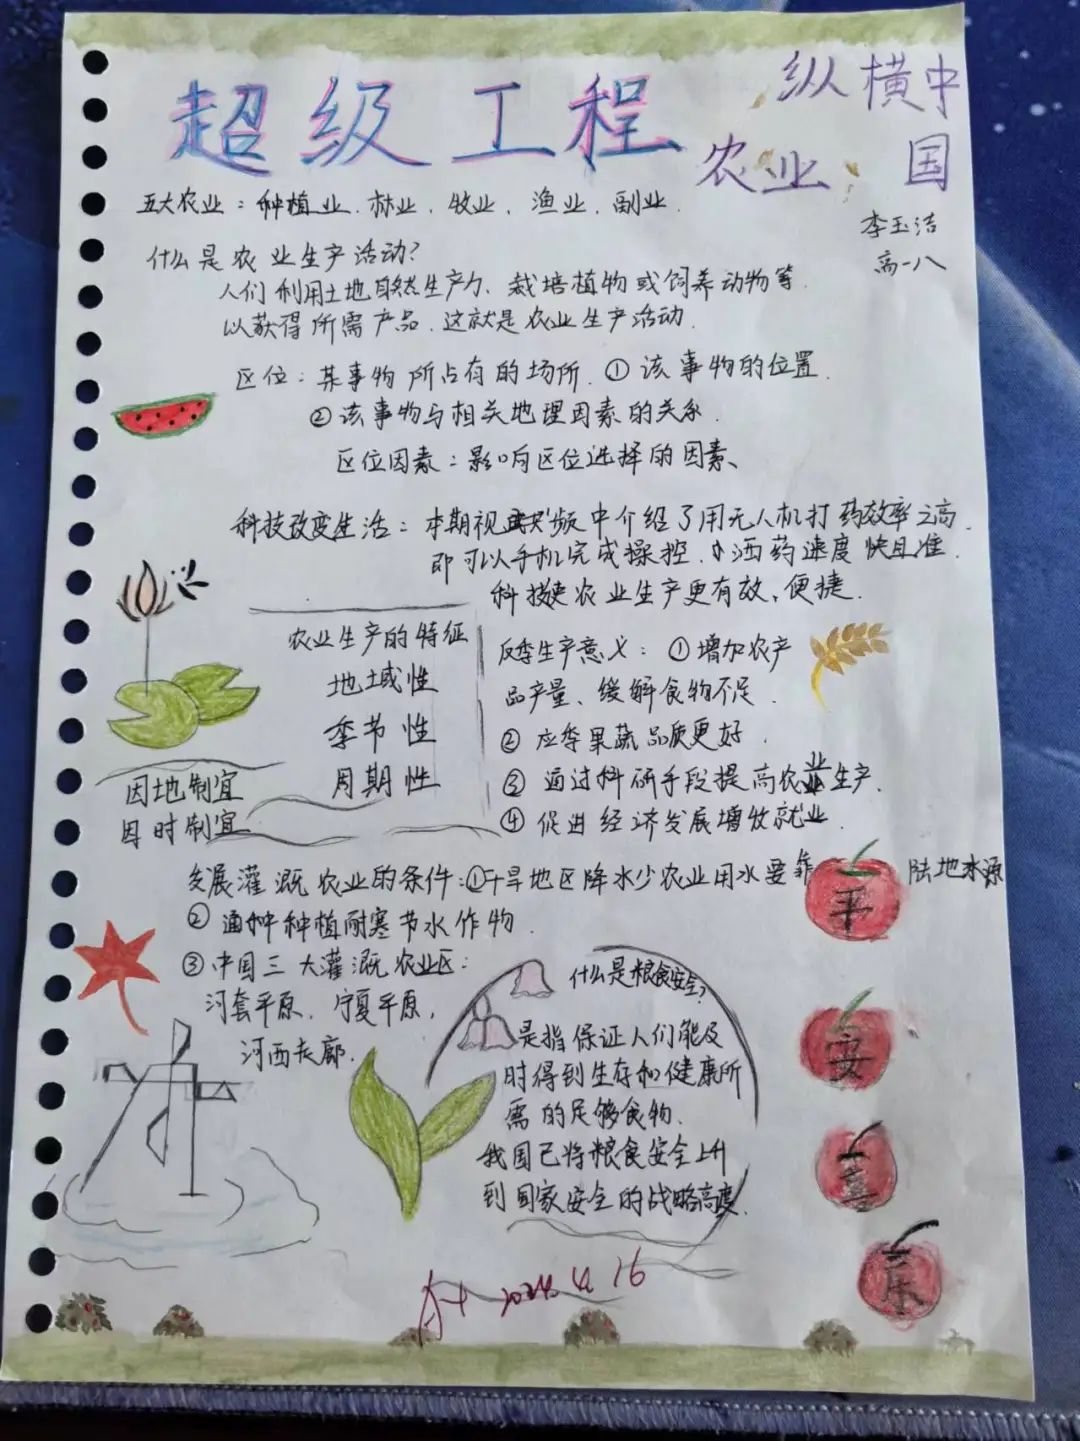 超级工程
纵横中
农业:国
李玉洁
高一八
五大农业:种植业、林业、牧业、渔业、副业.
什么是农业生产活动?
人们利用土地自然生产力、栽培植物或饲养动物等.
以获得所需产品.这就是农业生产活动.
区位:某事物所占有的场所.①该事物的位置.
②该事物与相关地理因素的关系.
区位因素:影响区位选择的因素、
科技改变生活:本期视频中介绍了用无人机打药效率之高.
即可以手机完成操控.洒药速度快且准.
科技使农业生产更有效、便捷.
农业生产的特征
地域性
季节性
周期性
因地制宜
因时制宜
反季生产意义:①增加农产
品产量、缓解食物不足.
②应季果蔬品质更好.
③通过科研手段提高农业生产.
④促进经济发展增收就业.
发展灌溉农业的条件:①干旱地区降水少农业用水要靠陆地水源
②种植耐寒节水作物.
③中国三大灌溉农业区:
河套平原.宁夏平原,
河西走廊.
什么是粮食安全?
是指保证人们能及
时得到生存和健康所
需的足够食物.
我国已将粮食安全上升
到国家安全的战略高度.
平
安
喜
乐
2024.4.16